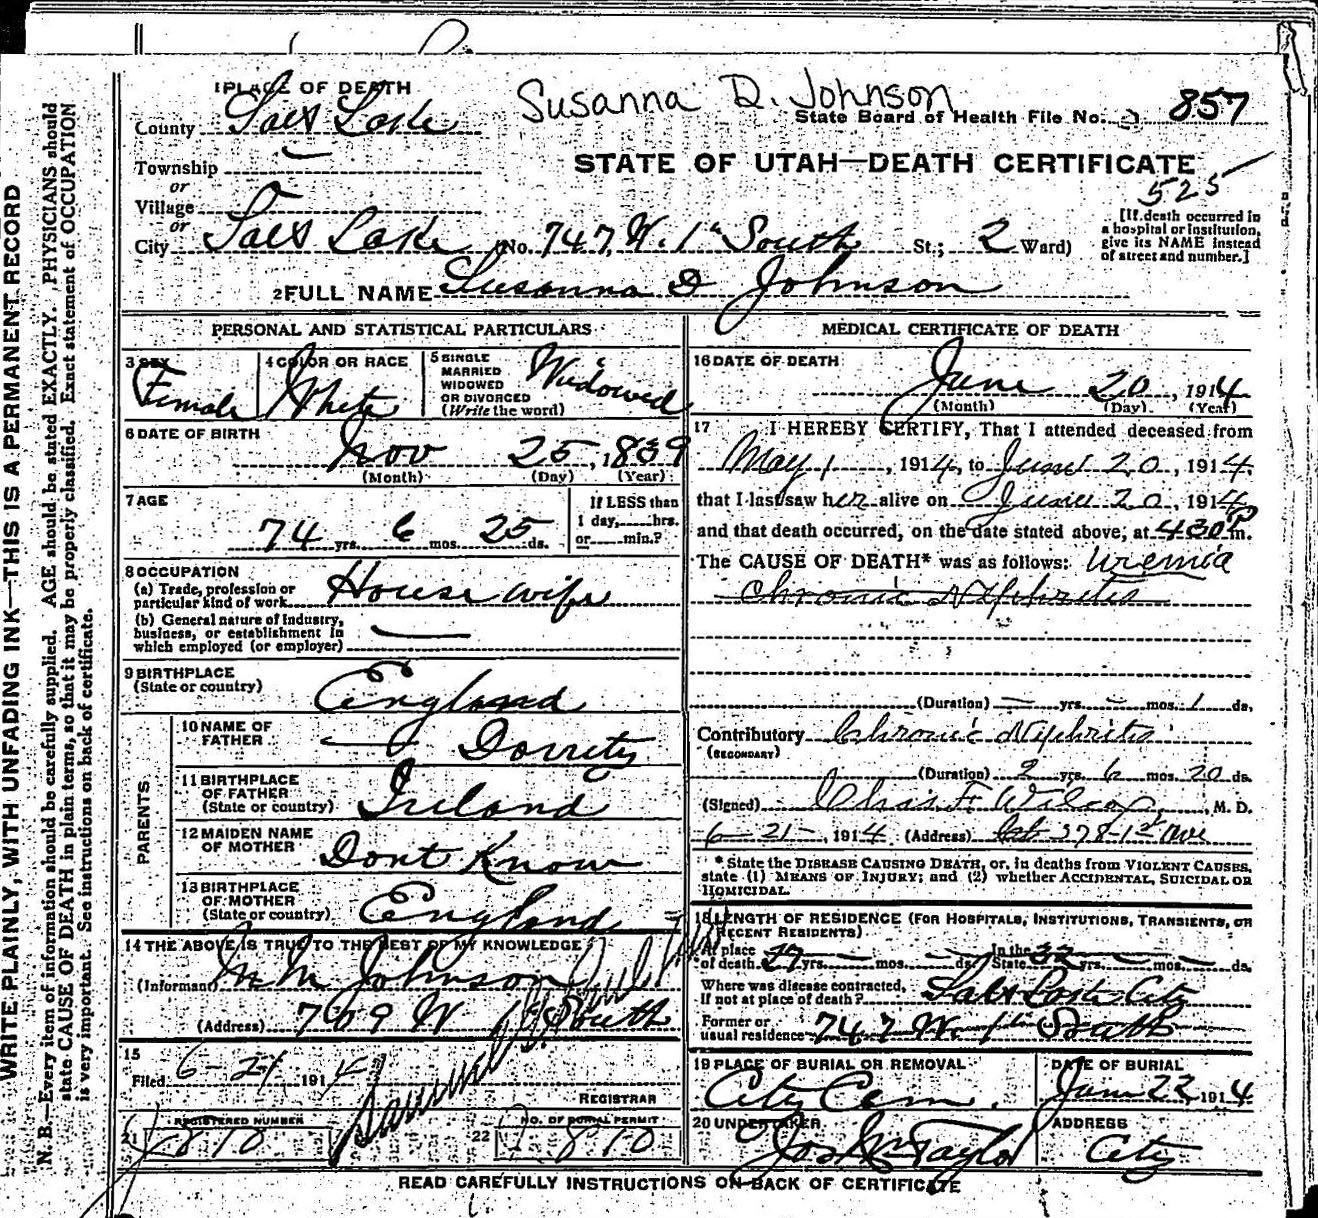 Susanna D. Johnson
1 PLACE OF DEATH
County Salt Lake
State Board of Health File No. 857
Township
or
Village
or
STATE OF UTAH—DEATH CERTIFICATE
525
City Salt Lake (No. 747 W. 1st South St.; 2 Ward)
[If death occurred in
a hospital or institution,
give its NAME instead
of street and number.]
2 FULL NAME Susanna D Johnson
PERSONAL AND STATISTICAL PARTICULARS
3 SEX Female
4 COLOR OR RACE White
5 SINGLE
MARRIED
WIDOWED
OR DIVORCED
(Write the word)
Widowed
6 DATE OF BIRTH
Nov 25, 1839
(Month) (Day) (Year)
7 AGE
74 yrs. 6 mos. 25 ds.
If LESS than
1 day, hrs.
or min.?
8 OCCUPATION
(a) Trade, profession or
particular kind of work House wife
(b) General nature of Industry,
business, or establishment in
which employed (or employer)
9 BIRTHPLACE
(State or country) England
PARENTS
10 NAME OF
FATHER — Dorrity
11 BIRTHPLACE
OF FATHER
(State or country) Ireland
12 MAIDEN NAME
OF MOTHER Dont Know
13 BIRTHPLACE
OF MOTHER
(State or country) England
14 THE ABOVE IS TRUE TO THE BEST OF MY KNOWLEDGE
(Informant) M M Johnson
(Address) 709 W 1st South
15
Filed 6-21 1914
REGISTRAR
REGISTERED NUMBER
21 J 810
NO. OF BURIAL PERMIT
22 J 810
MEDICAL CERTIFICATE OF DEATH
16 DATE OF DEATH
June 20, 1914
(Month) (Day) (Year)
17 I HEREBY CERTIFY, That I attended deceased from
May 1, 1914, to June 20, 1914,
that I last saw her alive on June 20, 1914,
and that death occurred, on the date stated above, at 430 P m.
The CAUSE OF DEATH* was as follows: Uremia
Chronic Nephritis
(Duration) — yrs. — mos. 1 ds.
Contributory Chronic Nephritis
(SECONDARY)
(Duration) 2 yrs. 6 mos. 20 ds.
(Signed) Chas F. Wilcox, M. D.
6-21-, 1914 (Address) 378-1st Ave
* State the DISEASE CAUSING DEATH, or, in deaths from VIOLENT CAUSES,
state (1) MEANS OF INJURY; and (2) whether ACCIDENTAL, SUICIDAL OR
HOMICIDAL.
18 LENGTH OF RESIDENCE (FOR HOSPITALS, INSTITUTIONS, TRANSIENTS, OR
RECENT RESIDENTS)
At place
of death 27 yrs. — mos. — ds. In the State 32 yrs. — mos. — ds.
Where was disease contracted,
if not at place of death? Salt Lake City
Former or
usual residence 747 W. 1st South
19 PLACE OF BURIAL OR REMOVAL
City Cem.
DATE OF BURIAL
June 23, 1914
20 UNDERTAKER
Jos Wm Taylor
ADDRESS
City
READ CAREFULLY INSTRUCTIONS ON BACK OF CERTIFICATE
WRITE PLAINLY, WITH UNFADING INK—THIS IS A PERMANENT RECORD
N. B.—Every item of information should be carefully supplied. AGE should be stated EXACTLY. PHYSICIANS should
state CAUSE OF DEATH in plain terms, so that it may be properly classified. Exact statement of OCCUPATION
is very important. See instructions on back of certificate.